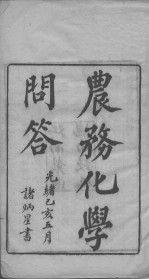 農務化學
問答
光緒己亥五月
諸炳星書